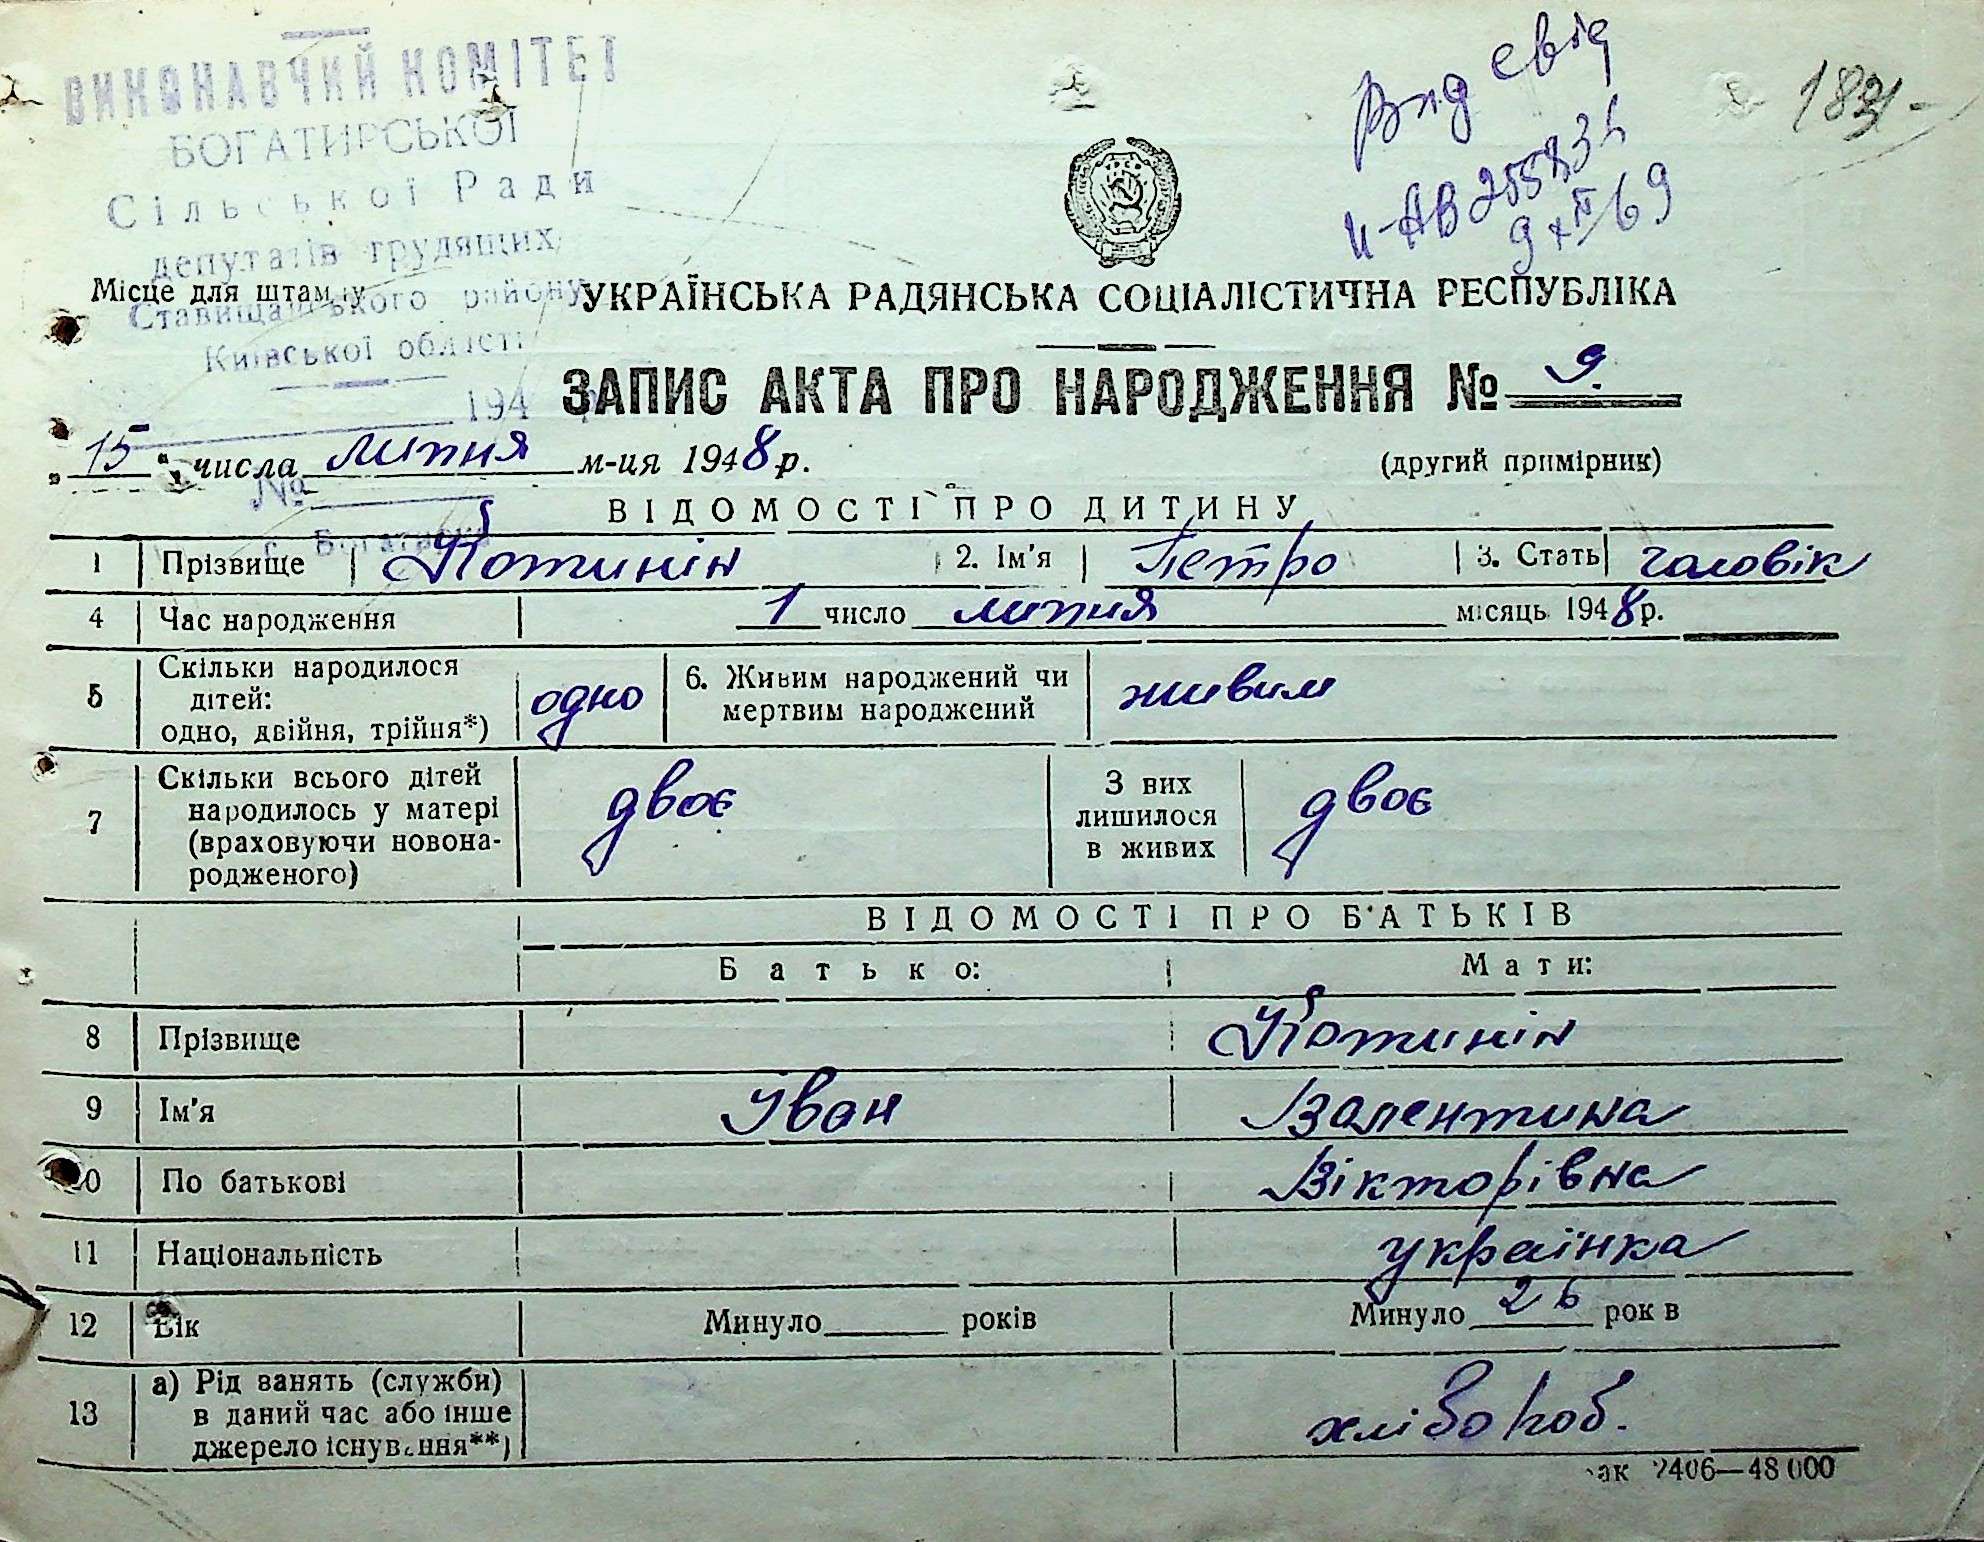 ВИКОНАВЧИЙ КОМІТЕТ
БОГАТИРСЬКОЇ
Сільської Ради
депутатів трудящих
Ставищанського району
Київської області
194
№
с.
Вид свід
9 XII 69
183
Місце для штампу
УКРАЇНСЬКА РАДЯНСЬКА СОЦІАЛІСТИЧНА РЕСПУБЛІКА
ЗАПИС АКТА ПРО НАРОДЖЕННЯ № 9.
„15“ числа липня м-ця 1948 р.
(другий примірник)
ВІДОМОСТІ ПРО ДИТИНУ
1 Прізвище Котинін 2. Ім'я Петро 3. Стать чоловік
4 Час народження 1 число липня місяць 1948 р.
5 Скільки народилося дітей: одно, двійня, трійня*) одно 6. Живим народжений чи мертвим народжений живим
7 Скільки всього дітей народилось у матері (враховуючи новонародженого) двоє З них лишилося в живих двоє
ВІДОМОСТІ ПРО БАТЬКІВ
Батько: Мати:
8 Прізвище Котинін
9 Ім'я Іван Валентина
10 По батькові Вікторівна
11 Національність українка
12 Вік Минуло років Минуло 26 років
13 а) Рід занять (служби) в даний час або інше джерело існування**) хлібороб.
Зак 2406—48 000